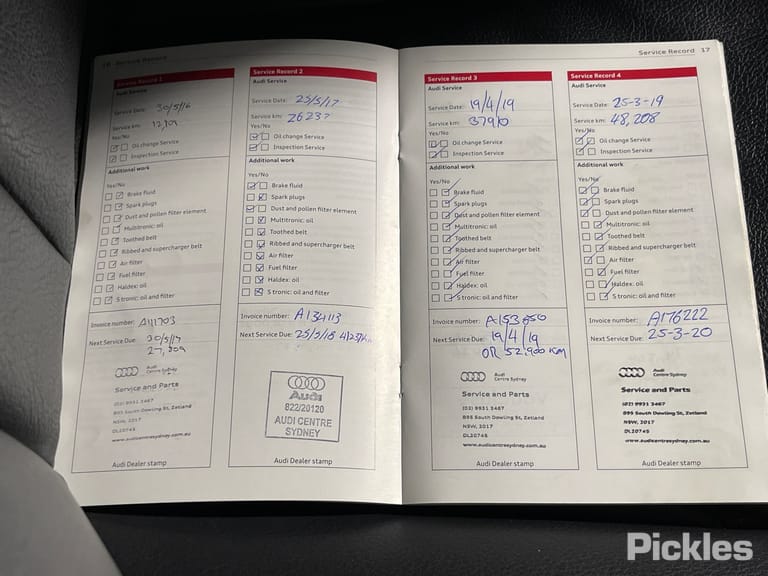 16 Service Record
Service Record 1
Audi Service
Service Date: 30/5/16
Service km:
Yes/No
Oil change Service
Inspection Service
Additional work
Yes/No
Brake fluid
Spark plugs
Dust and pollen filter element
Multitronic: oil
Toothed belt
Ribbed and supercharger belt
Air filter
Fuel filter
Haldex: oil
S tronic: oil and filter
Invoice number: A111703
Next Service Due: 30/5/17
27,209
Audi
Centre Sydney
Service and Parts
(02) 9931 3467
895 South Dowling St, Zetland
NSW, 2017
DL20745
www.audicentresydney.com.au
Audi Dealer stamp
Service Record 2
Audi Service
Service Date: 25/5/17
Service km: 26237
Yes/No
Oil change Service
Inspection Service
Additional work
Yes/No
Brake fluid
Spark plugs
Dust and pollen filter element
Multitronic: oil
Toothed belt
Ribbed and supercharger belt
Air filter
Fuel filter
Haldex: oil
S tronic: oil and filter
Invoice number: A134113
Next Service Due: 25/5/18 41237km
Audi
822/20120
AUDI CENTRE
SYDNEY
Audi Dealer stamp
Service Record 17
Service Record 3
Audi Service
Service Date: 19/4/19
Service km: 37910
Yes/No
Oil change Service
Inspection Service
Additional work
Yes/No
Brake fluid
Spark plugs
Dust and pollen filter element
Multitronic: oil
Toothed belt
Ribbed and supercharger belt
Air filter
Fuel filter
Haldex: oil
S tronic: oil and filter
Invoice number: A153650
Next Service Due: 19/4/19
OR 52,900 KM
Audi
Centre Sydney
Service and Parts
(02) 9931 3467
895 South Dowling St, Zetland
NSW, 2017
DL20745
www.audicentresydney.com.au
Audi Dealer stamp
Service Record 4
Audi Service
Service Date: 25-3-19
Service km: 48,208
Yes/No
Oil change Service
Inspection Service
Additional work
Yes/No
Brake fluid
Spark plugs
Dust and pollen filter element
Multitronic: oil
Toothed belt
Ribbed and supercharger belt
Air filter
Fuel filter
Haldex: oil
S tronic: oil and filter
Invoice number: A176222
Next Service Due: 25-3-20
Audi
Centre Sydney
Service and Parts
(02) 9931 3467
895 South Dowling St, Zetland
NSW, 2017
DL20745
www.audicentresydney.com.au
Audi Dealer stamp
Pickles